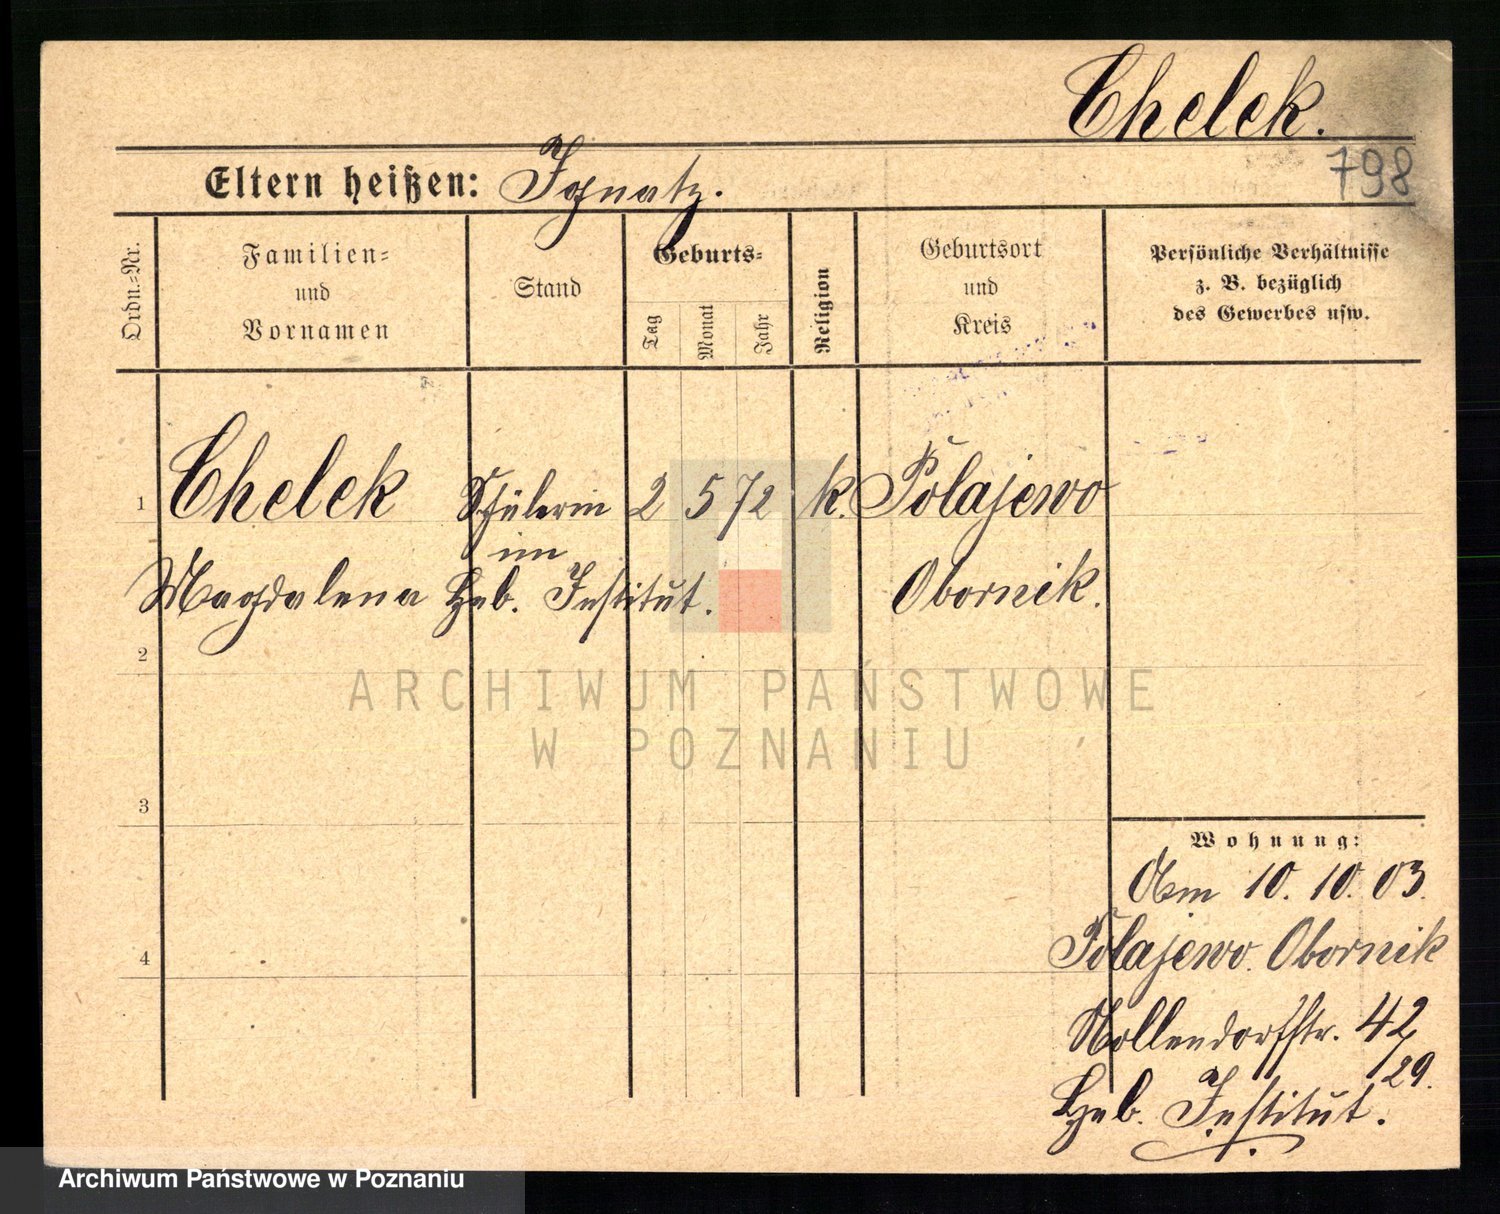 Chelek.
798
Eltern heißen: Ignatz.
Ordn.-Nr.
Familien-
und
Vornamen
Stand
Geburts-
Tag
Monat
Jahr
Religion
Geburtsort
und
Kreis
Persönliche Verhältnisse
z. B. bezüglich
des Gewerbes usw.
1 Chelek Schülerin 2 5 72 k. Polajewo
im
Magdalena Heb. Institut. Obornik.
2
3
4
ARCHIWUM PAŃSTWOWE
W POZNANIU
Wohnung:
Am 10. 10. 03.
Polajewo. Obornik
Nollendorfstr. 42/29.
Heb. Institut.
Archiwum Państwowe w Poznaniu